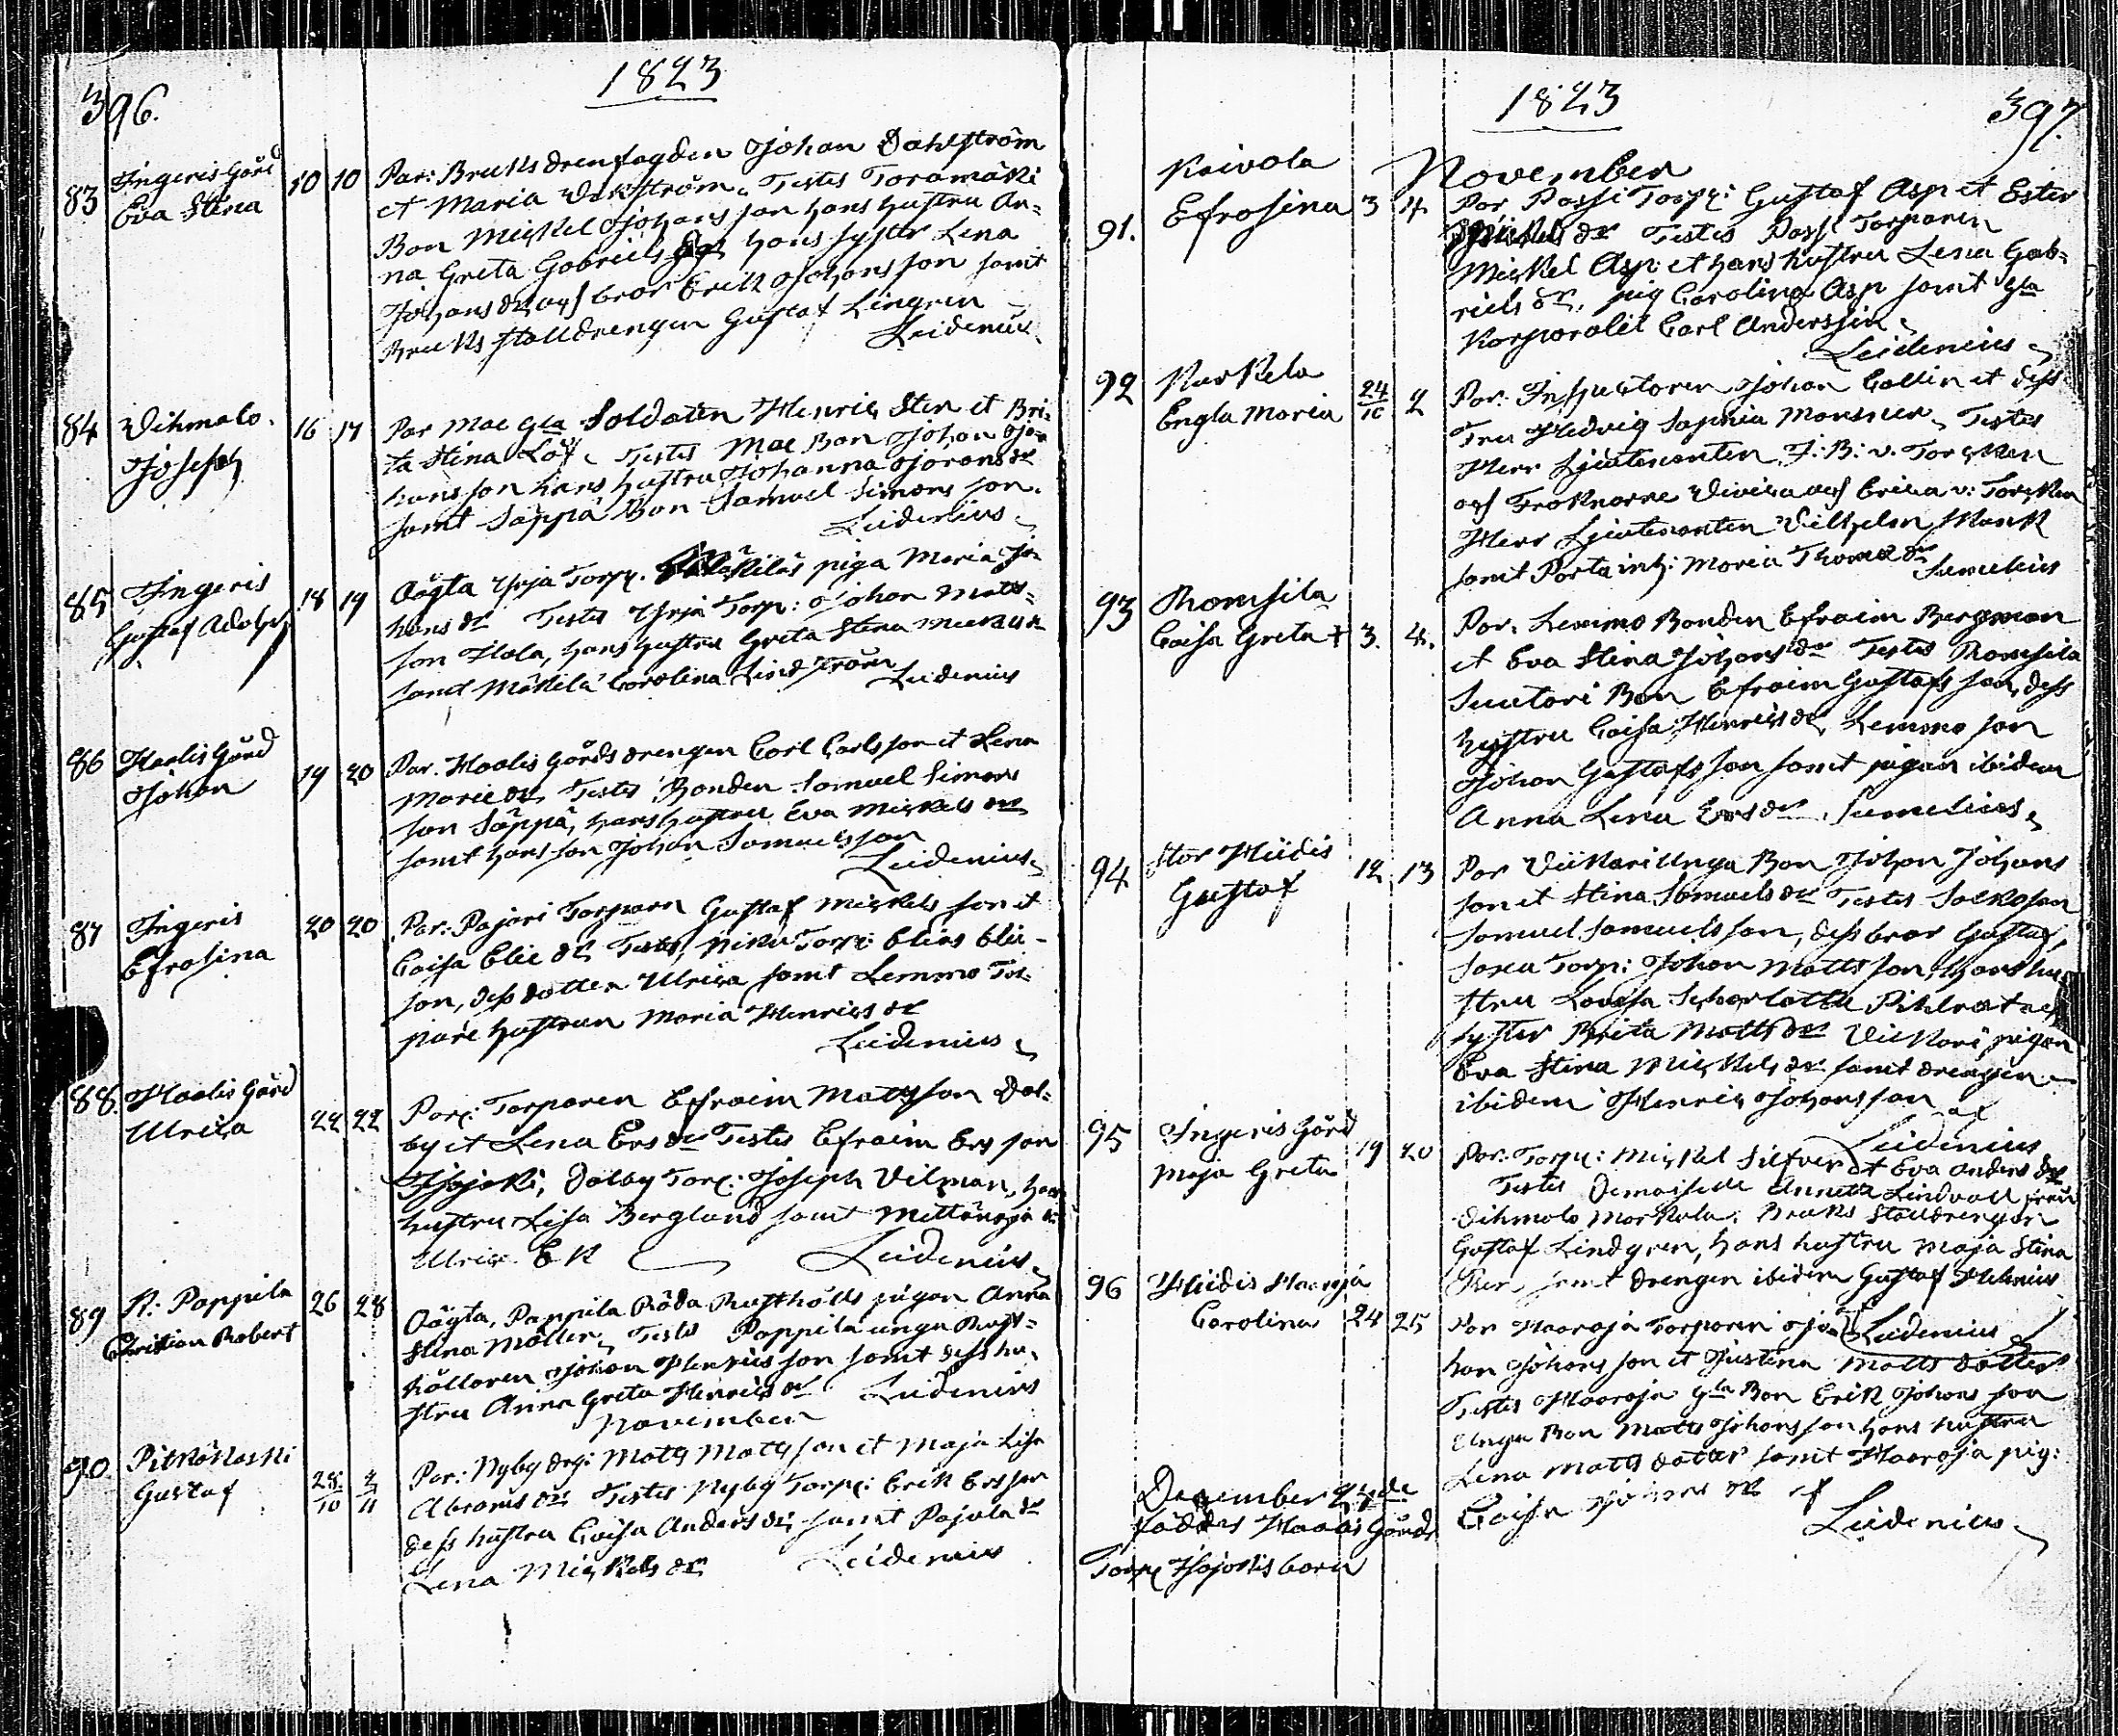 396.
1823
83 Ingeris Gård 10 10 Par: Bruksdrengfogden Johan Dahlström
Eva Stina et Maria Testes Toramäki
Bon Mickel Johansson hans hustru An=
na Greta Gabriels hans syster Lena
Johans dr och bror Erik Johansson samt
Bruks stalldrengen Gustaf Lingren
Leidenius
84 Vihmalo. 16 17 Par Mae Gla Soldaten Henric Sten et Bri-
Joseph ta Stina Löf. Testes Mae Bon Johan Jo-
hansson hans hustru Johanna Jorans dr
samt Säppä Bon Samuel Simonsson.
Leidenius
85 Ingeris 18 19 Oägta Yrjä Torp. piga Maria Jo-
Gustaf Adolph hans dr Testes Yrjä Torp: Johan Matts-
son Hola, hans hustru Greta Stina
samt Mäkilä Carolina Lindström Leidenius
86 Haalis Gård 19 20 Par. Haalis Gårds drengen Carl Carlsson et Lena
Johan Marie dr Testes Bonden Samuel Simons
son Säppä, hans hustru Eva Mickels dr
samt hans son Johan Samuelsson
Leidenius
87 Ingeris 20 20 Par: Pajari Torparn Gustaf Mickelsson et
Efrosina Caisa Elie dr Testes, Torp: Elias Elie-
son, dess dotter Ulrica samt Lemmo Tor-
pare hustrun Maria Henrics dr
Leidenius
88. Haalis Gård 22 22 Par: Torparen Efraim Matsson Dal-
Ulrica by et Lena Ers dr Testes Efraim Ersson
Jojoki, Dalby Torp: Joseph Vilman, hans
hustru Lisa Berglund samt
Ulrica Ek Leidenius
89 R: Pappila 26 28 Oägta, Pappila Röda Rusthålls pigan Anna
Christian Robert Stina Möller, Testes Pappila unga Rust-
hållaren Johan Henricsson samt dess hu-
stru Anna Greta Henrics dr Leidenius
November
90 Pitkäkoski 28/10 2/11 Par: Nyby drg: Mats Matsson et Maja Lisa
Gustaf Abrams dr Testes Nyby Torp: Erik Ersson
dess hustru Caisa Anders dr samt Pajula dr
Lena Mickels dr Leidenius
1823
397.
November
Keivola Par Passi Torp: Gustaf Asp et Ester
91. Efrosina 3 4 dr Testes Passi Torparen
Mickel Asp et hans hustru Lena Gab-
riels dr, pig Carolina Asp samt Gla
Korporalil Carl Andersin
Leidenius
92 Kuskela 24/10 2 Par: Inspectoren Johan Collin et dess
Engla Maria Fru Hedvig Sophia Testes
Herr Lieutenanten J: B: v. Torcken
och Fröknarne Vivica och Erica v: Torcken
Herr Lieutenanten Vilhelm Munk
samt Porta inh: Maria Thomæ dr Sumelius
93 Romsila Par. Lemmo Bonden Efraim Bergman
Caisa Greta + 3. 4. et Eva Stina Johans dr Testes Romsila
Suutari Bon Efraim Gustafsson, dess
hustru Caisa Henrics dr, Lemmo son
Johan Gustafsson samt pigan ibidem
Anna Lena Ers dr. Sumelius
94 Stor Hiidis 12 13 Par Viikari Unga Bon Johan Johans
Gustaf son et Stina Samuels dr Testes son
Samuel Samuelsson, dess bror Gustaf,
Torp: Johan Mattsson, hans hu-
stru Lovisa Scharlotta
syster Brita Matts dr Viikari pigan
Eva Stina Mickels dr samt drengen
ibidem Henric Johansson af
Leidenius
95 Ingeris Gård 19 20 Par: Torp: Mickel Silfver et Eva Anders dr
Maja Greta Testes Demoiselle Annette Lindvall från
Vihmalo Bruks Stalldrengen
Gustaf Lindgren, hans hustru Maja Stina
samt drengen ibidem Gustaf
96 Hiidis Haaroja 24 25 Par Haaroja Torparen Jo- Leidenius
Carolina han Johansson et Justina Matts dotter
Testes Haaroja Gla Bon Erik Johansson
Unga Bon Matts Johansson hans hustru
Lena Matts dotter samt Haaroja pig:
Caisa Johans dr af
Leidenius
December 27de
föddes Haalis Gårds
Torp Jojokis barn